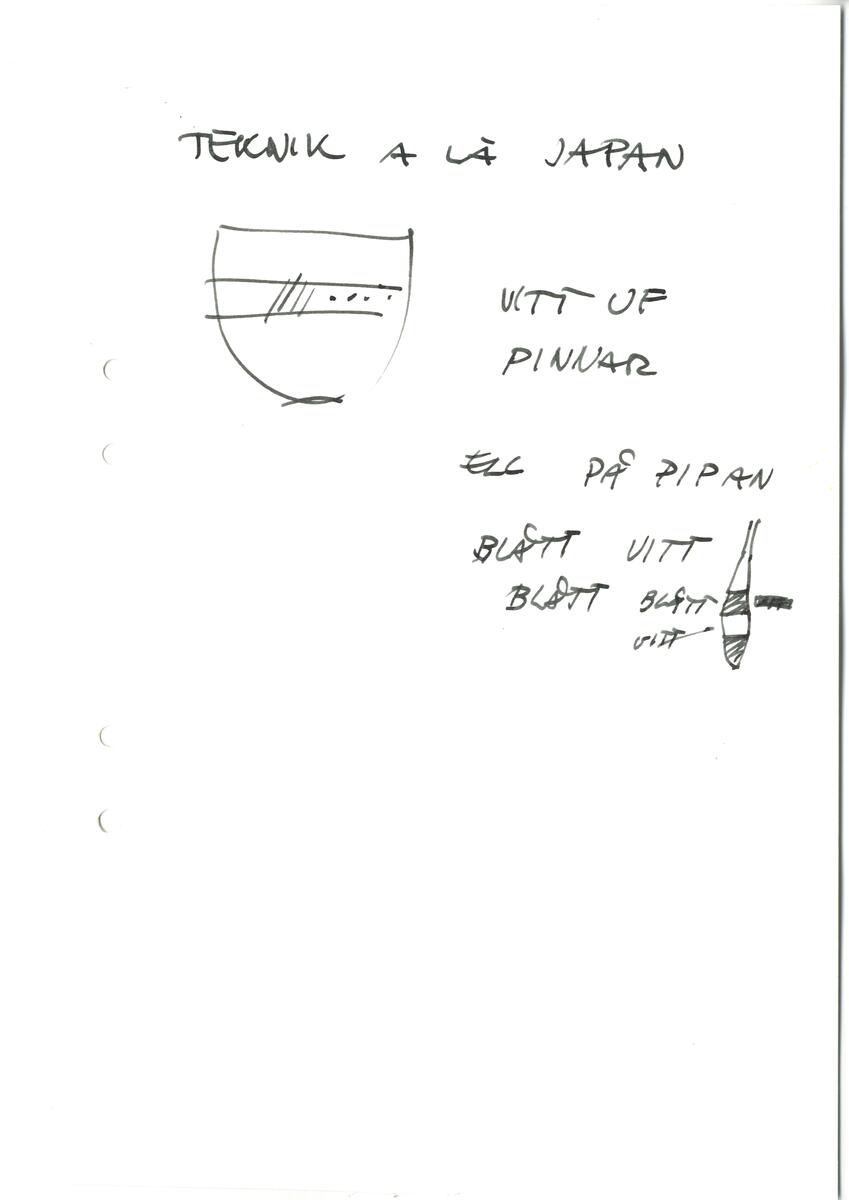 TEKNIK A LA JAPAN
VITT UF
PINNAR
ELL PÅ PIPAN
BLÅTT VITT
BLÅTT BLÅTT
VITT